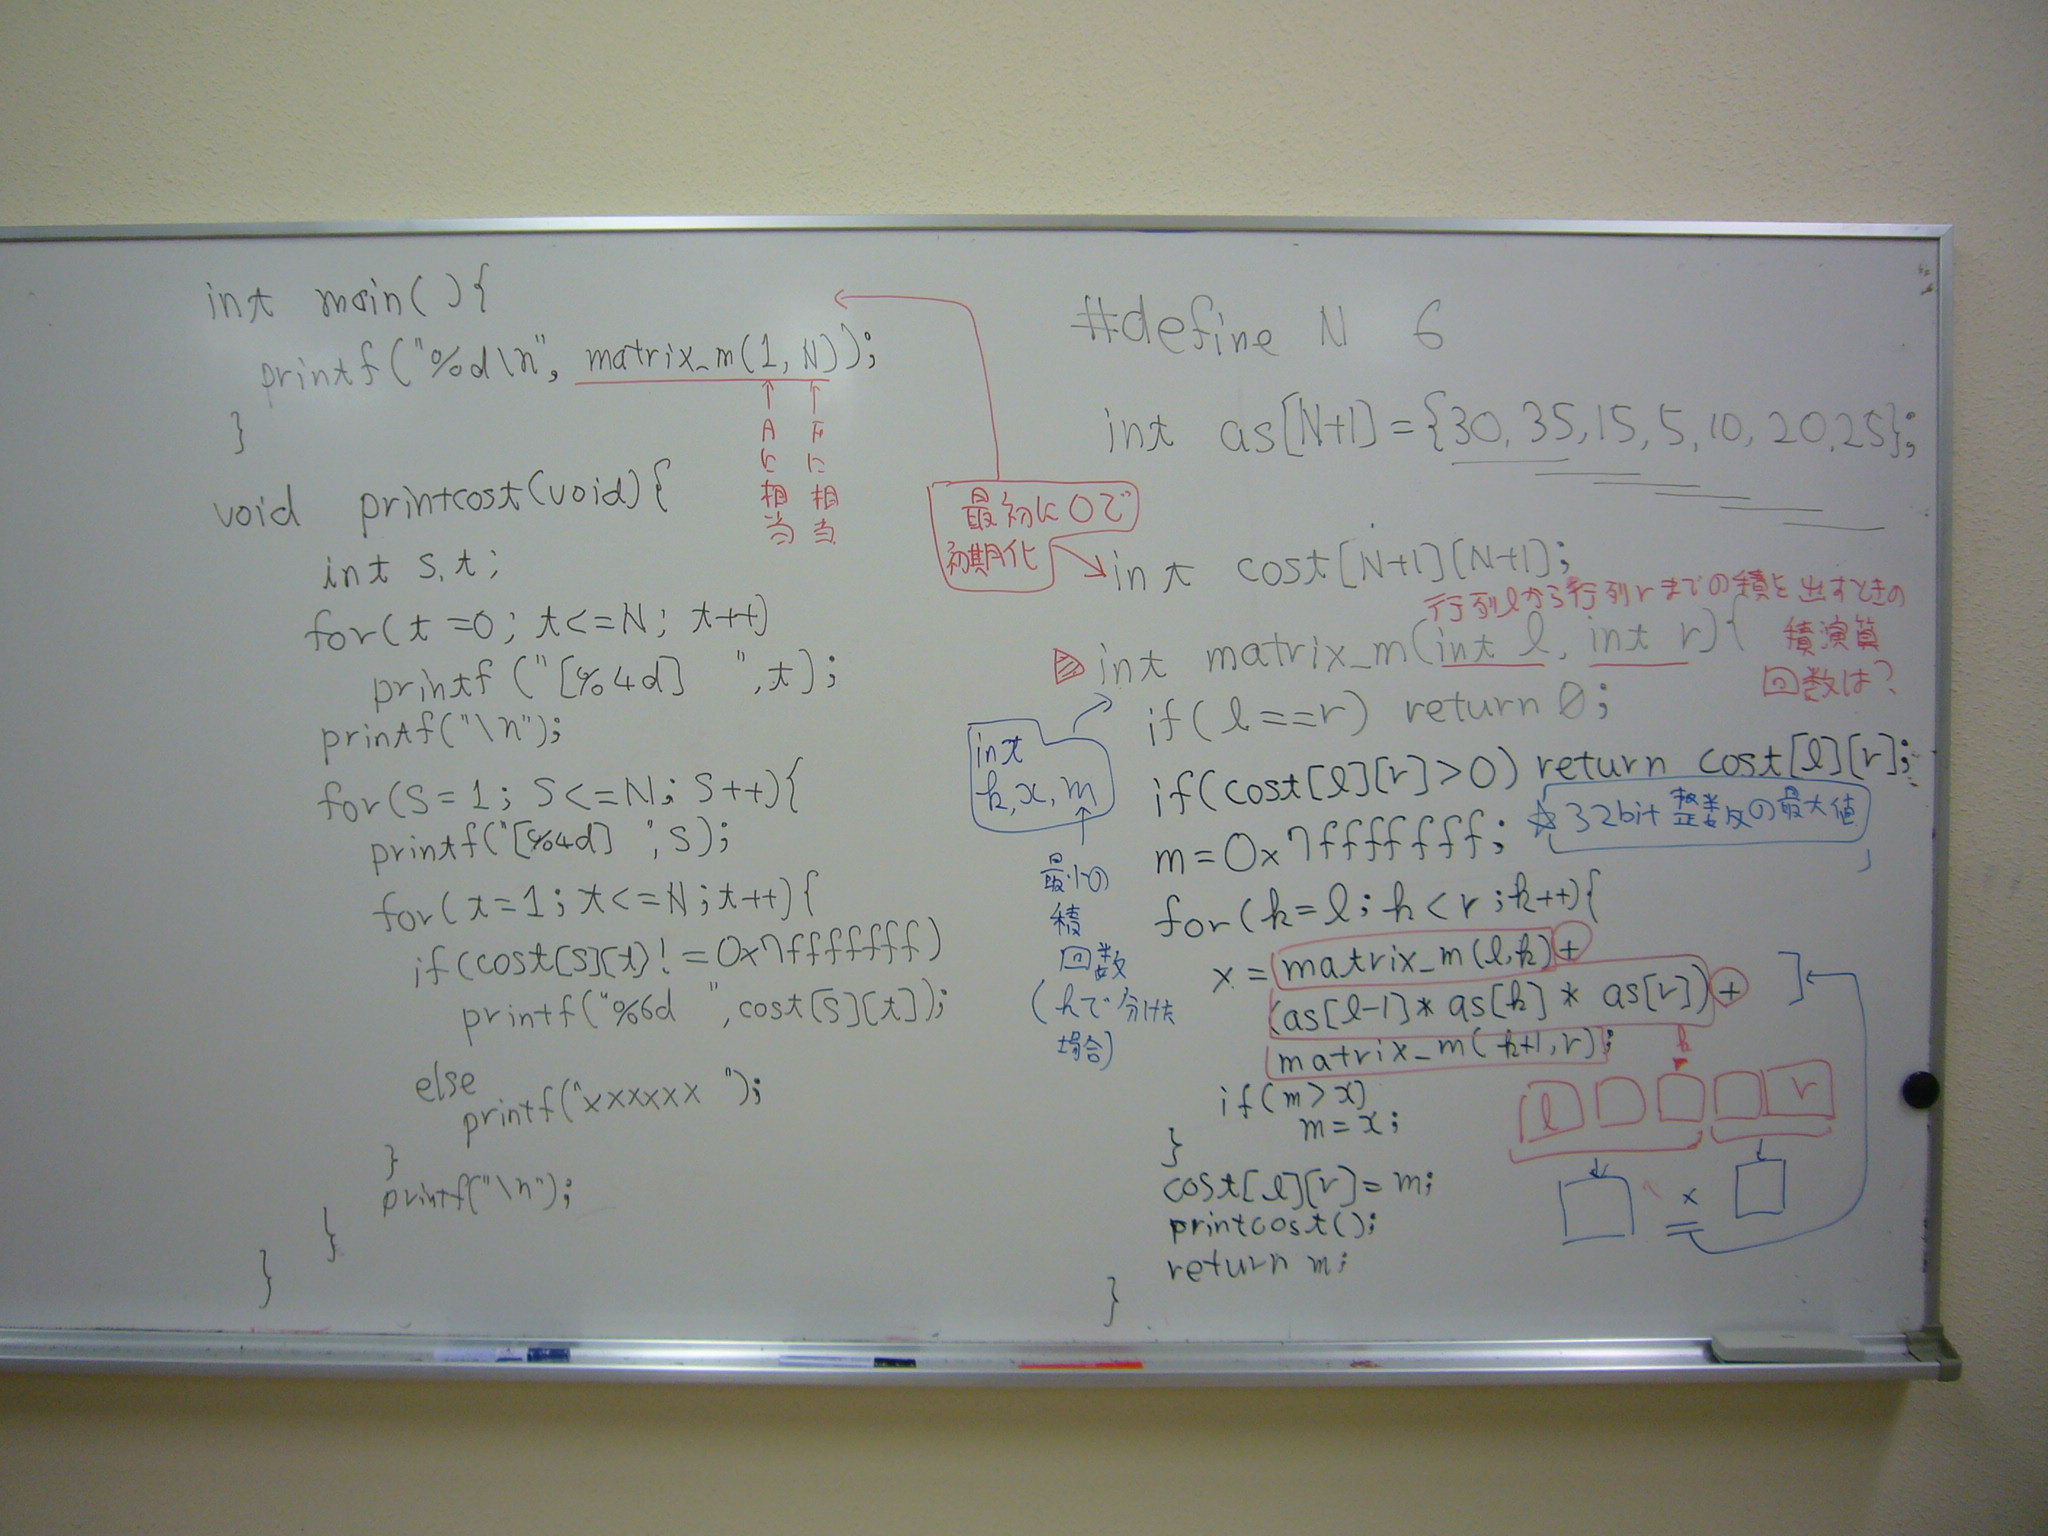 int main(){
printf("%d\n", matrix_m(1, N));
}
Aに相当
Fに相当
void printcost(void){
int s, t;
for(t=0; t<=N; t++)
printf("[%4d] ",t);
printf("\n");
for(s=1; s<=N; s++){
printf("[%4d] ",s);
for(t=1; t<=N; t++){
if(cost[s][t]!=0x7fffffff)
printf("%6d ",cost[s][t]);
else
printf("xxxxxx ");
}
printf("\n");
}
}
#define N 6
int as[N+1]={30, 35, 15, 5, 10, 20, 25};
最初に0で
初期化
int cost[N+1][N+1];
行列lから行列rまでの積を出すときの
積演算
回数は?
int matrix_m(int l, int r){
int
k, x, m
最小の
積
回数
(kで分けた
場合)
if(l==r) return 0;
if(cost[l][r]>0) return cost[l][r];
m=0x7fffffff;
☆32bit整数の最大値
for(k=l; k<r; k++){
x = matrix_m(l,k) +
(as[l-1]* as[k] * as[r]) +
matrix_m(k+1,r);
k
l r
×
if(m>x)
m=x;
}
cost[l][r]=m;
printcost();
return m;
}